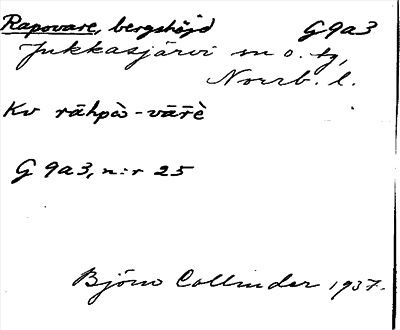 Rapovare, bergshöjd G9a3
Jukkasjärvi sn o. tg,
Norrb. l.
Kv rāhpȧ̀-vār̄è
G 9a3, n:r 25
Björn Collinder 1937.